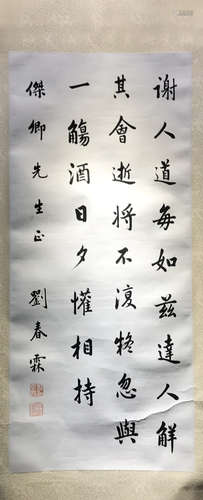 謝人道每如茲達人解
其會逝將不復疑忽與
一觴酒日夕懽相持
傑卿先生正 劉春霖